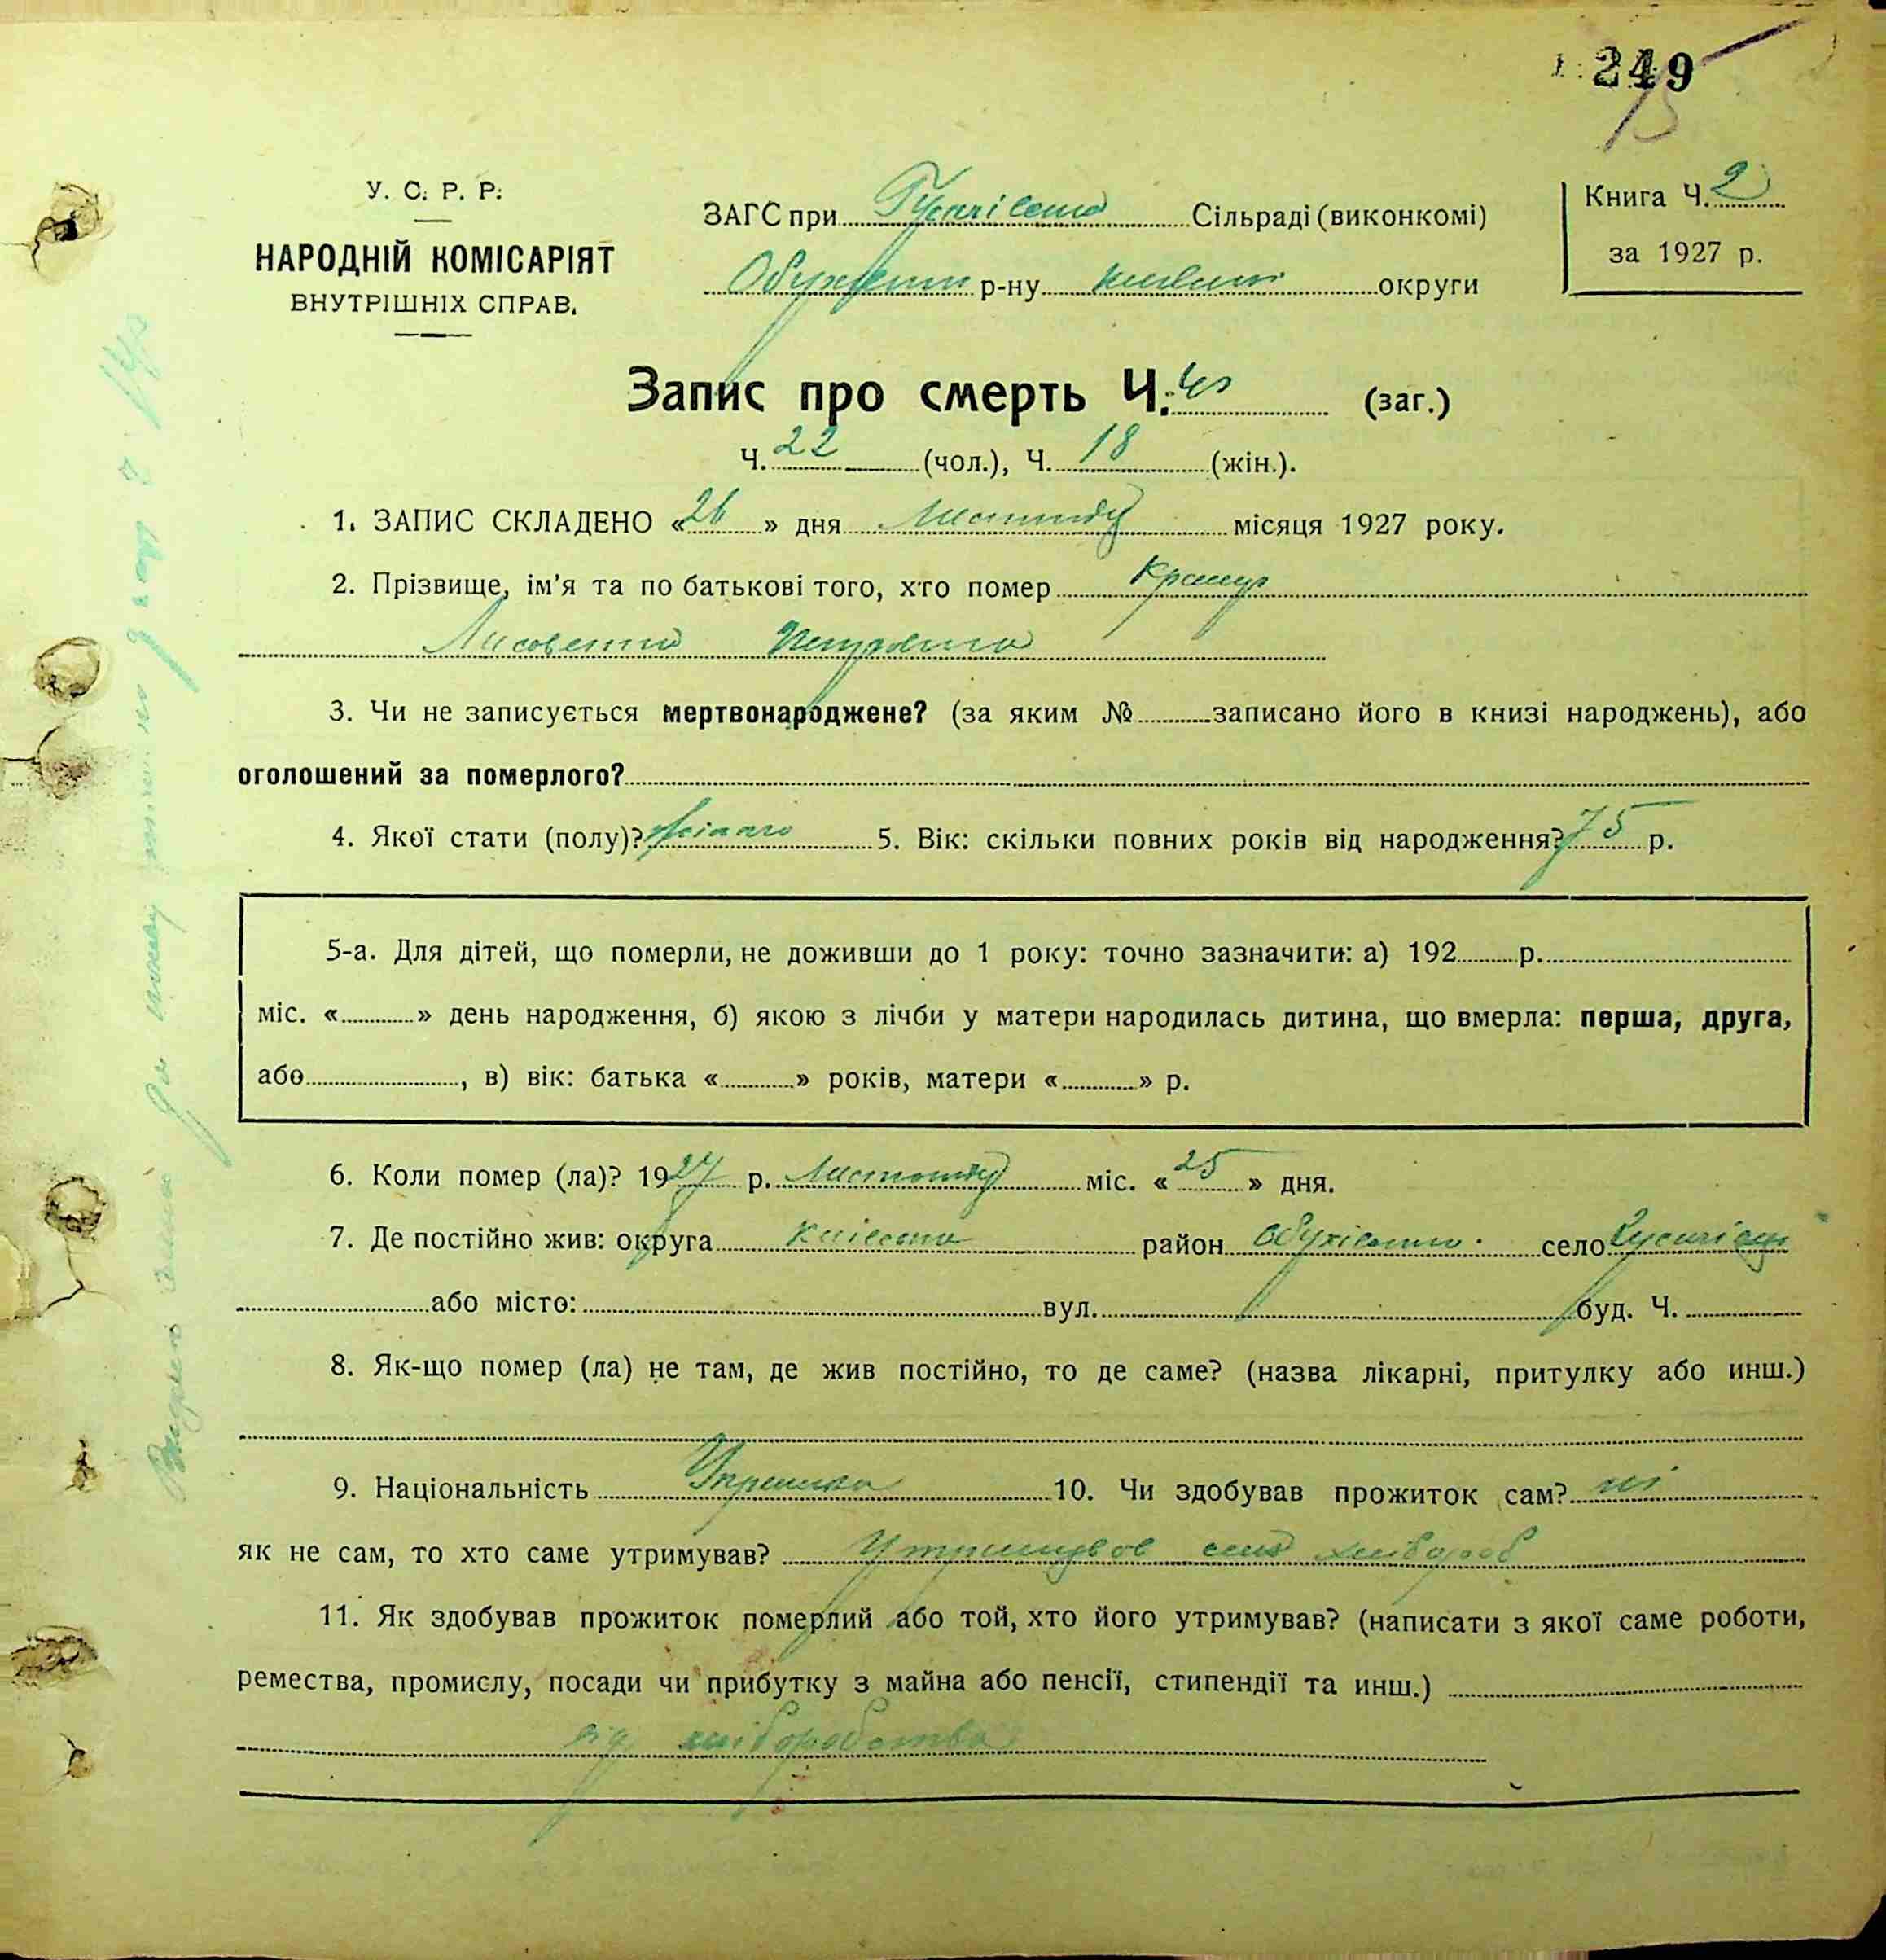 249
15
У. С. Р. Р.
НАРОДНІЙ КОМІСАРІЯТ
ВНУТРІШНІХ СПРАВ.
ЗАГС при Сільраді (виконкомі)
р-ну округи
Книга Ч. 2
за 1927 р.
Запис про смерть Ч. 40 (заг.)
Ч. 22 (чол.), Ч. 18 (жін.).
1. ЗАПИС СКЛАДЕНО «26» дня Листопаду місяця 1927 року.
2. Прізвище, ім'я та по батькові того, хто помер
Лисовета Петровна
3. Чи не записується мертвонароджене? (за яким № записано його в книзі народжень), або
оголошений за померлого?
4. Якої стати (полу)? 5. Вік: скільки повних років від народження? 75 р.
5-а. Для дітей, що померли, не доживши до 1 року: точно зазначити: а) 192 р.
міс. « » день народження, б) якою з лічби у матери народилась дитина, що вмерла: перша, друга,
або , в) вік: батька « » років, матери « » р.
6. Коли помер (ла)? 1927 р. Листопаду міс. «25» дня.
7. Де постійно жив: округа Київська район Обухівський село
або місто: вул. буд. Ч.
8. Як-що помер (ла) не там, де жив постійно, то де саме? (назва лікарні, притулку або инш.)
9. Національність Українка 10. Чи здобував прожиток сам? ні
як не сам, то хто саме утримував? син хлібороб
11. Як здобував прожиток померлий або той, хто його утримував? (написати з якої саме роботи,
ремества, промислу, посади чи прибутку з майна або пенсії, стипендії та инш.)
від хліборобства